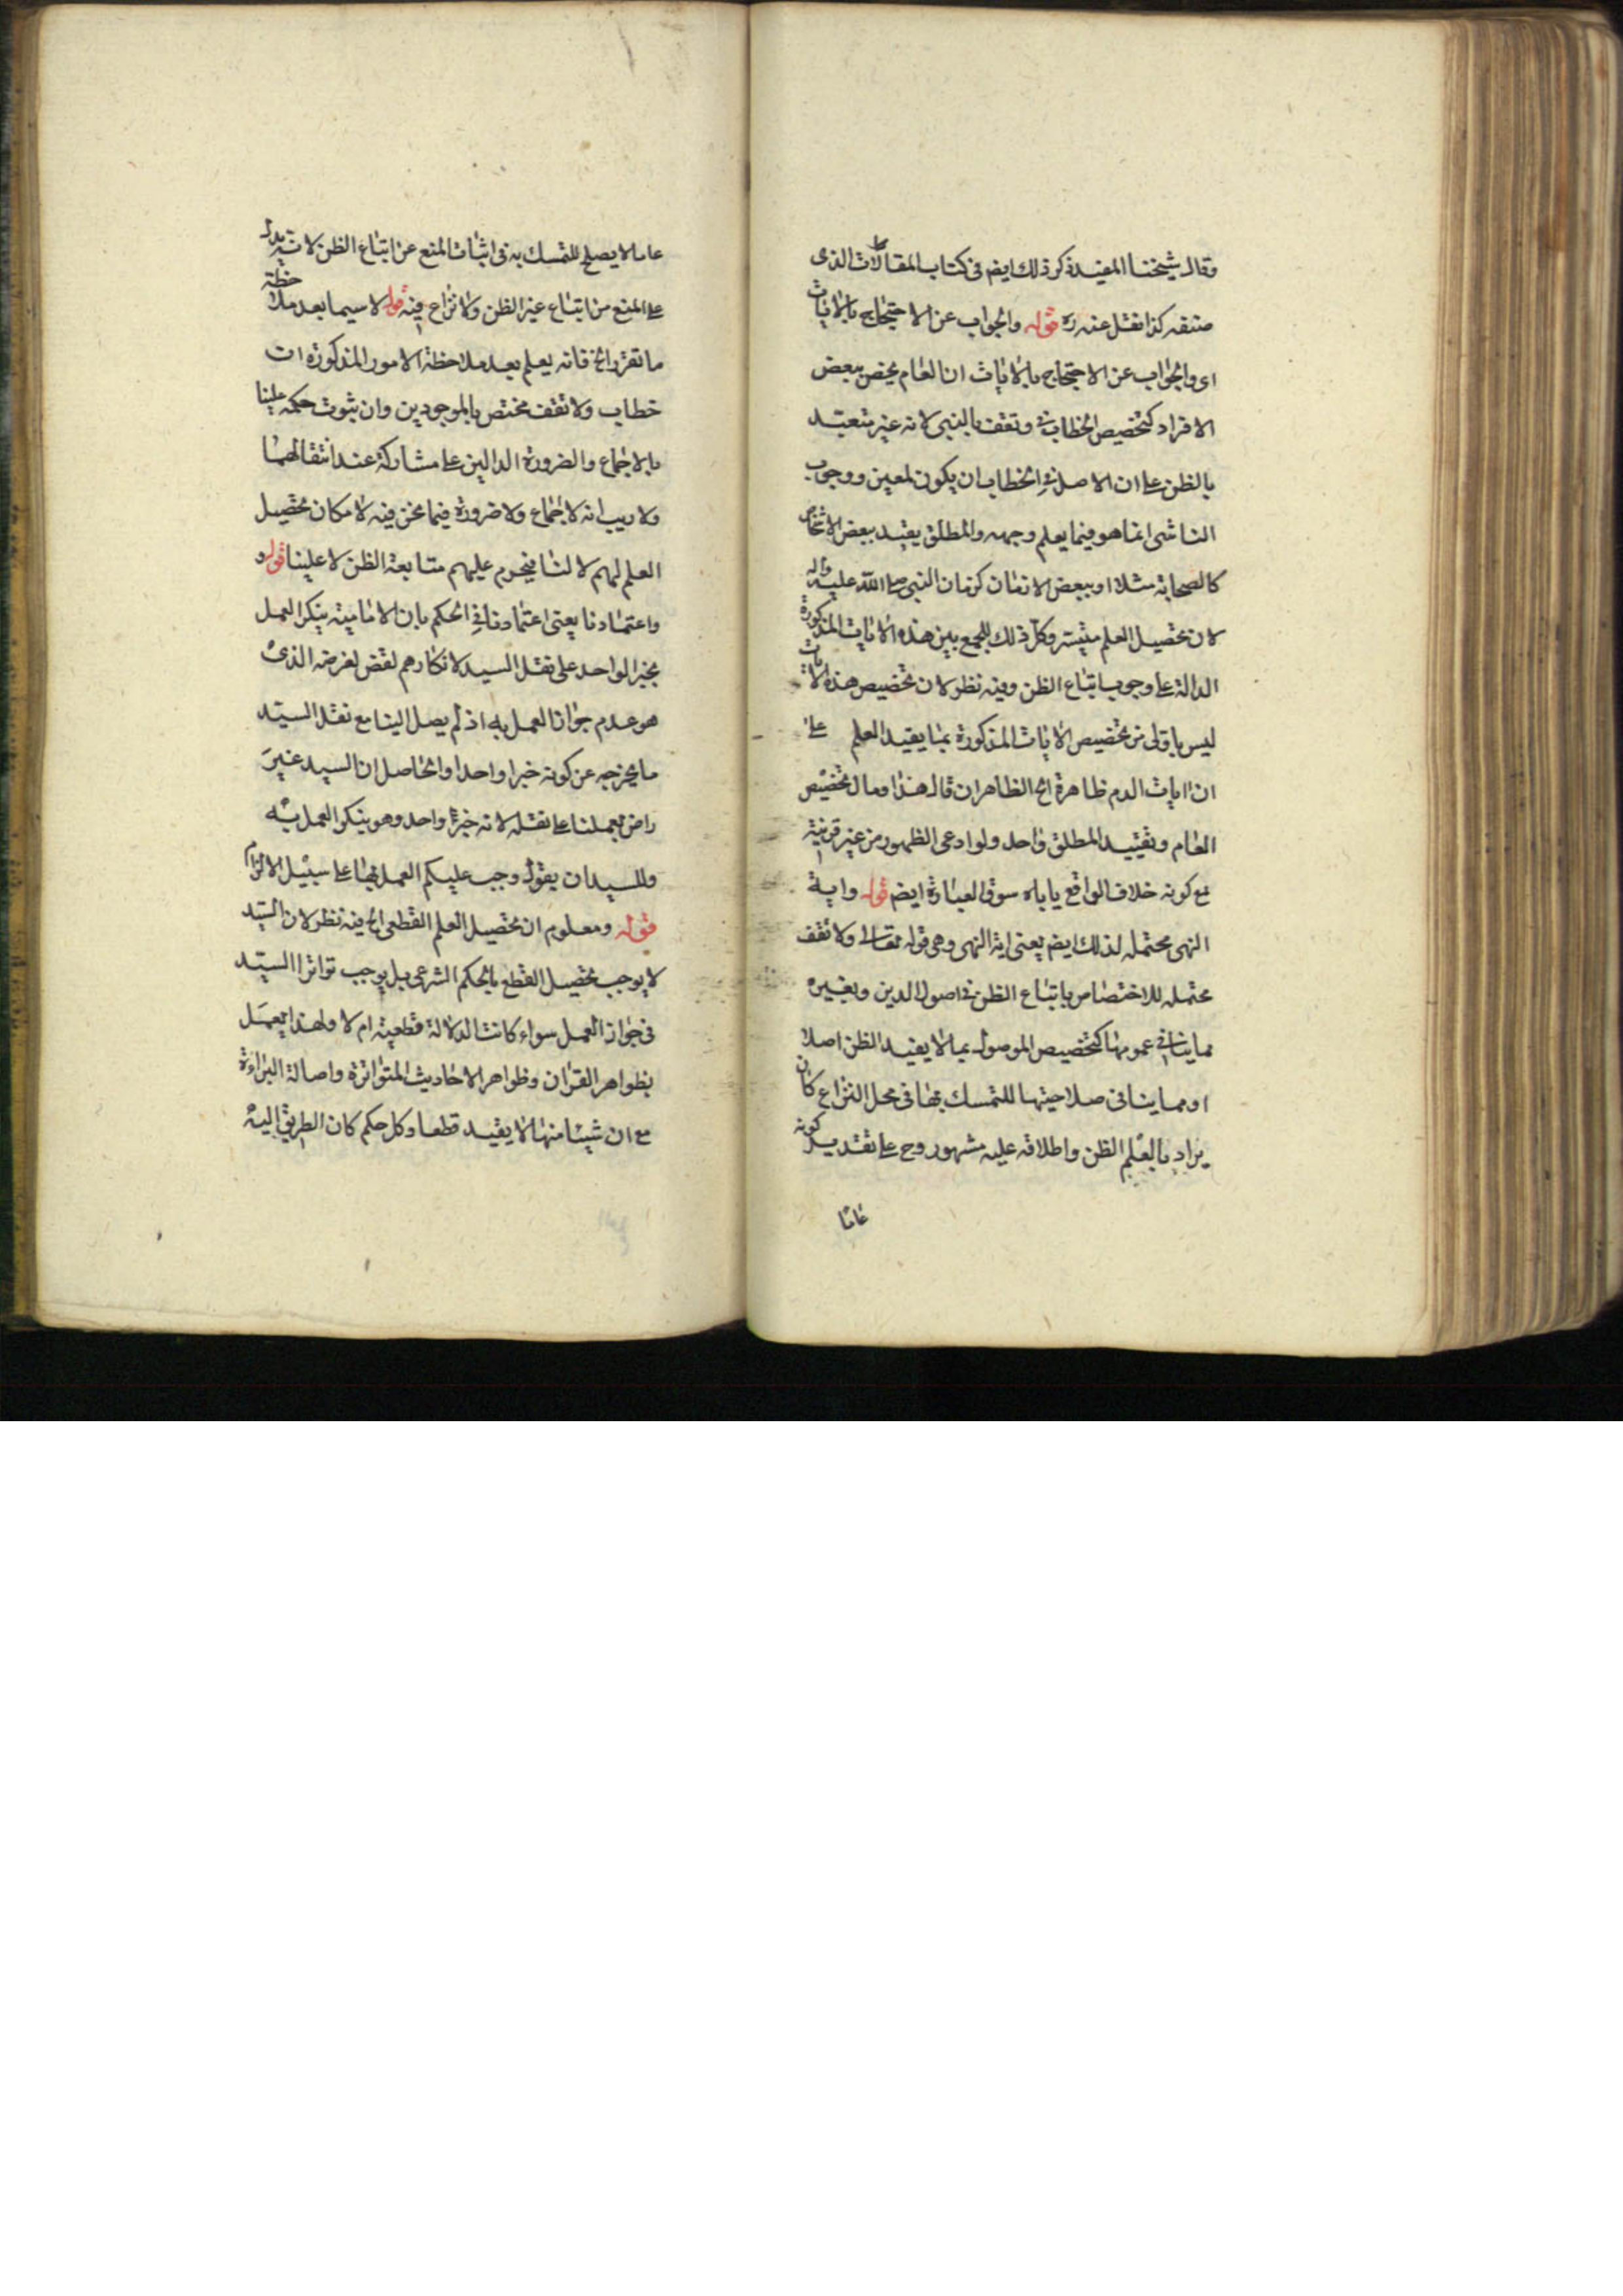 وقال شيخنا المفيد ذكر ذلك ايضا في كتاب المقالات الذى
صنفه كذا نقل عنه ره قوله والجواب عن الاحتجاج بالايات
اى والجواب عن الاحتجاج بالايات ان العام يخص ببعض
الافراد كتخصيص الخطاب في وتقف بالنبي لانه غير متعبد
بالظن على ان الاصل في الخطاب ان يكون لمعين ووجوب
التاسي انما هو فيما يعلم وجهه والمطلق يقيد ببعض الاشخاص
كالصحابة مثلا او ببعض الازمان كزمان النبي صلى الله عليه واله
لان تحصيل العلم متيسر وكل ذلك للجمع بين هذه الايات المذكورة
الدالة على وجوب اتباع الظن وفيه نظر لان تخصيص هذه الايات
ليس باولى من تخصيص الايات المذكورة بما يفيد العلم على
ان ايات الذم ظاهرة الخ الظاهر ان قال هذا ومال تخصيص
العام وتقييد المطلق واحد ولو ادعى الظهور من غير قرينة
مع كونه خلاف الواقع ياباه سوق العبارة ايضا قوله واية
النهى محتمله لذلك ايضا يعنى اية النهى وهى قوله تعالى ولا تقف
محتمله للاختصاص باتباع الظن في اصول الدين وبغيره
مما ينافى عمومها كتخصيص الموصول بما لا يفيد الظن اصلا
او مما ينافى صلاحيتها للتمسك بها في محل النزاع كان
يراد بالعلم الظن واطلاقه عليه مشهور وح على تقدير كونه
عاما
عاما لا يصلح للتمسك به في اثبات المنع عن اتباع الظن لانه يدل
على المنع من اتباع غير الظن ولا نزاع فيه قوله لا سيما بعد ملاحظة
ما تقرر الخ فانه يعلم بعد ملاحظة الامور المذكورة ان
خطاب ولا تقف مختص بالموجودين وان ثبوت حكمه علينا
بالاجماع والضرورة الدالين على مشاركة عند انتقالهما
ولا ريب انه لا اجماع ولا ضرورة فيما نحن فيه لامكان تحصيل
العلم لهم لا لنا فيحرم عليهم متابعة الظن لا علينا قوله و
واعتمادنا يعنى اعتمادنا في الحكم بان الامامية ينكر العمل
بخبر الواحد على نقل السيد لانكارهم نقض لغرضه الذى
هو عدم جواز العمل به اذ لم يصل الينا مع نقل السيد
ما يخرجه عن كونه خبرا واحدا والحاصل ان السيد غير
راض بعملنا على نقله لانه خبر واحد وهو ينكر العمل به
وللسيد ان يقول وجب عليكم العمل بها على سبيل الالزام
قوله ومعلوم ان تحصيل العلم القطعى الخ فيه نظر لان السيد
لا يوجب تحصيل القطع بالحكم الشرعى بل يوجب تواتر السيد
في جواز العمل سواء كانت الدلالة قطعية ام لا ولهذا يعمل
بظواهر القران وظواهر الاحاديث المتواترة واصالة البراءة
مع ان شيئا منها لا يفيد قطعا وكل حكم كان الطريق اليه